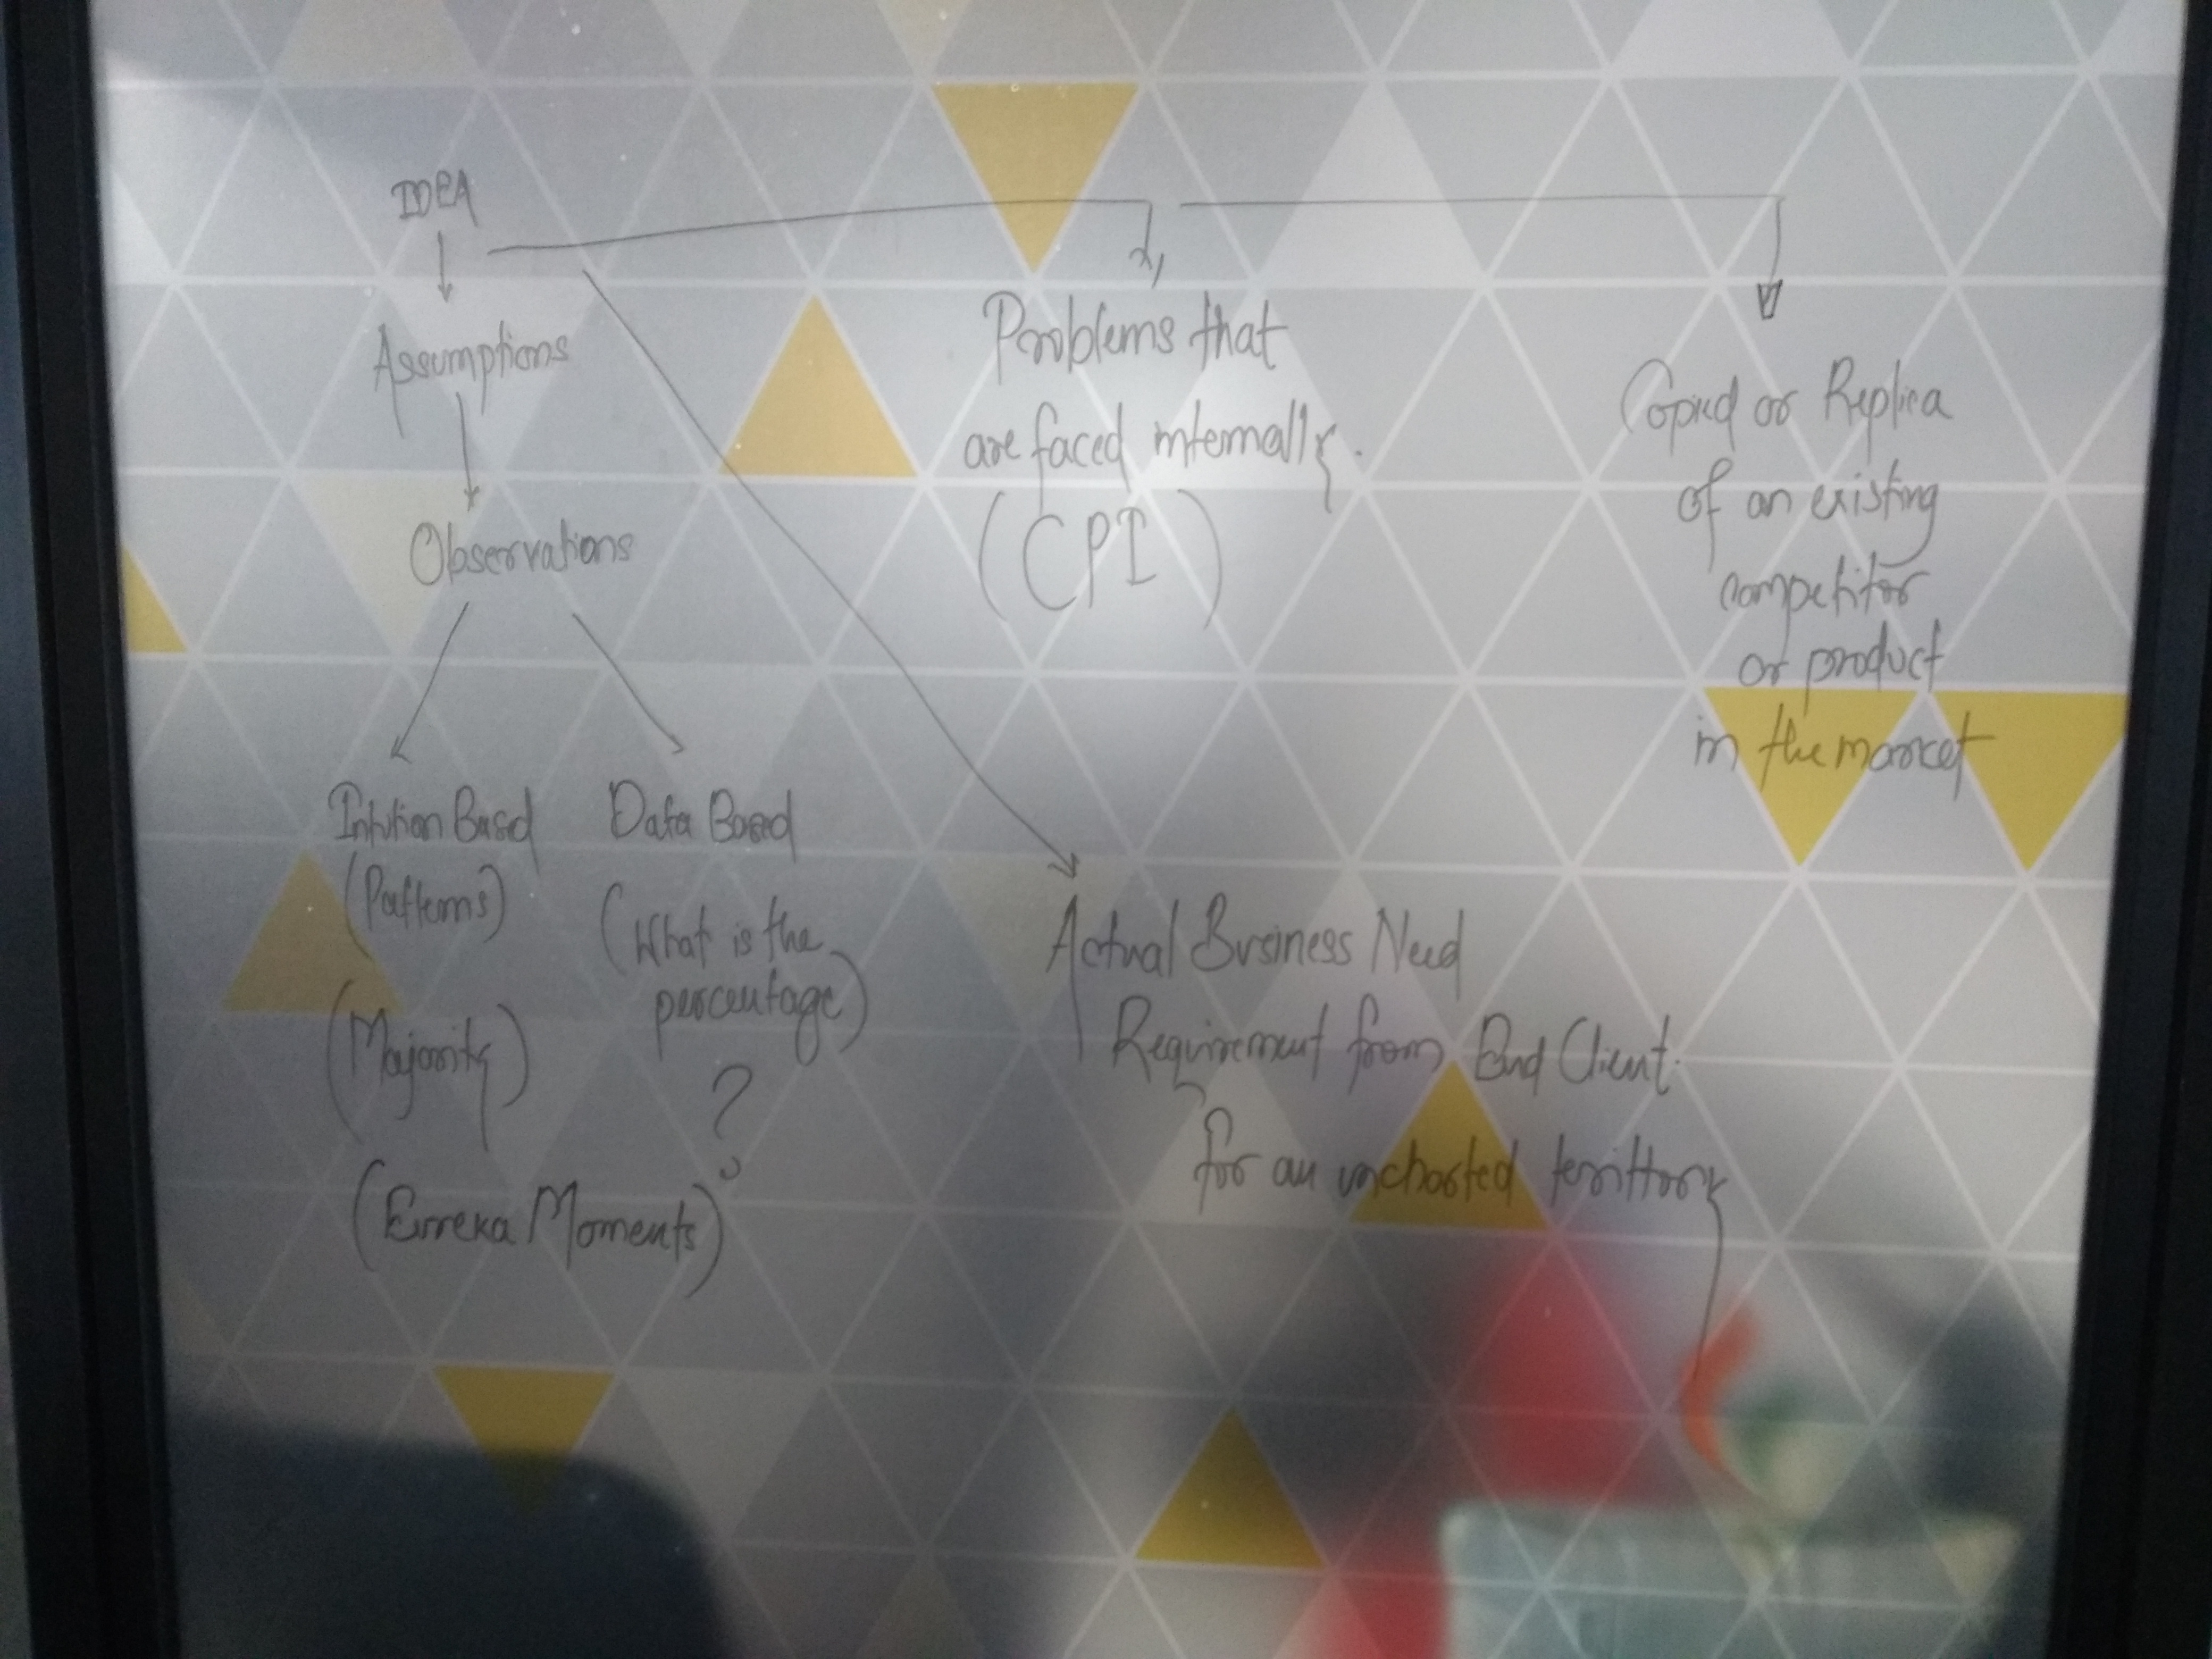 IDEA
Assumptions
Observations
Intution Based
(Patterns)
(Majority)
(Eureka Moments)
Data Based
(What is the
percentage)
?
Problems that
are faced internally.
(CPI)
Copied or Replica
of an existing
competitor
or product
in the market
Actual Business Need
Requirement from End Client.
for an uncharted territtory